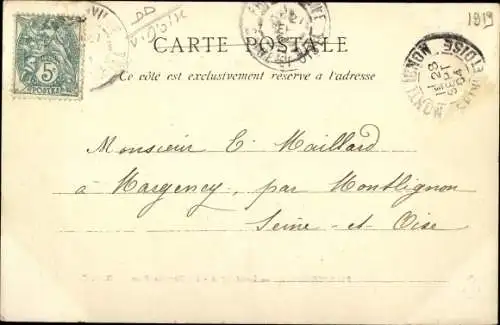 1919
CARTE POSTALE
Ce côté est exclusivement réservé à l'adresse
5
POSTES
MONTLIGNON
28
SEPT
04
Monsieur E. Maillard
à Margency, par Montlignon
Seine-et-Oise